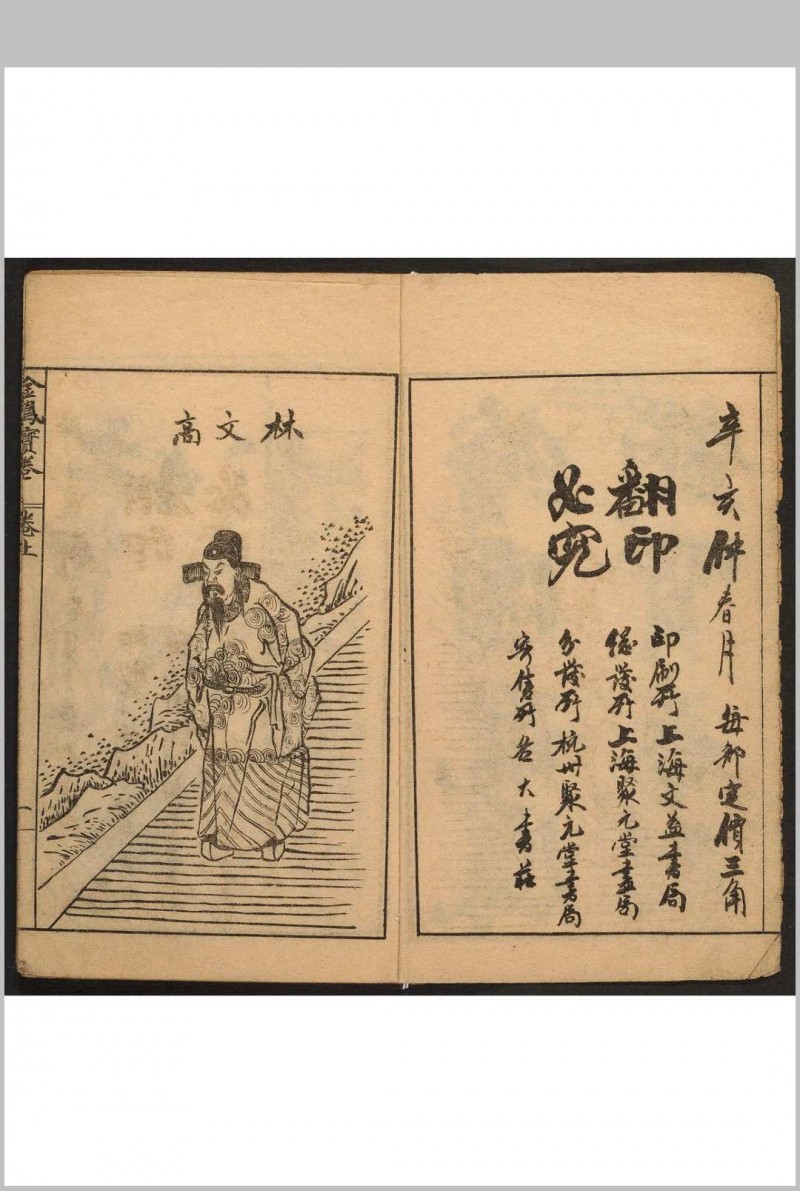 辛亥年春月 每部定價三角
翻印
必究
印刷所上海文益書局
總發所上海聚元堂書局
分發所杭州聚元堂書局
寄售所各大書莊
林文高
金鳳寶卷 卷上
一